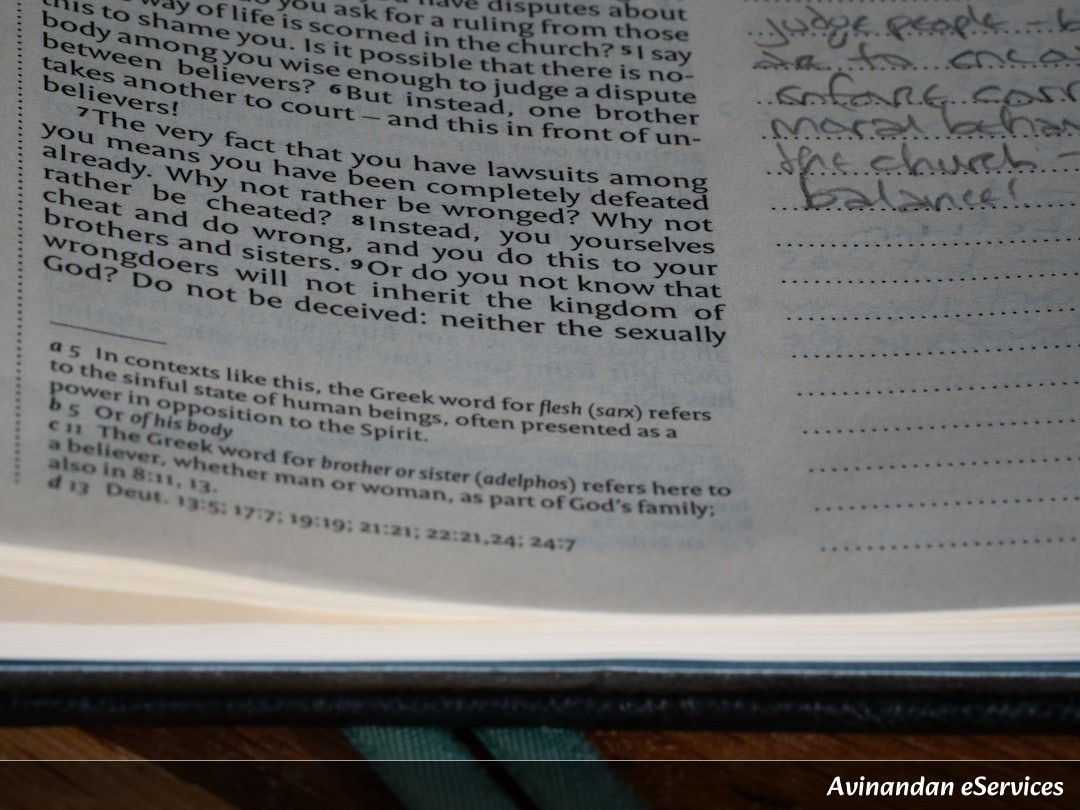 have disputes about
do you ask for a ruling from those
way of life is scorned in the church? 5 I say
this to shame you. Is it possible that there is no-
body among you wise enough to judge a dispute
between believers? 6 But instead, one brother
takes another to court – and this in front of un-
believers!
7 The very fact that you have lawsuits among
you means you have been completely defeated
already. Why not rather be wronged? Why not
rather be cheated? 8 Instead, you yourselves
cheat and do wrong, and you do this to your
brothers and sisters. 9 Or do you not know that
wrongdoers will not inherit the kingdom of
God? Do not be deceived: neither the sexually
a 5 In contexts like this, the Greek word for flesh (sarx) refers
to the sinful state of human beings, often presented as a
power in opposition to the Spirit.
b 5 Or of his body
c 11 The Greek word for brother or sister (adelphos) refers here to
a believer, whether man or woman, as part of God's family;
also in 8:11, 13.
d 13 Deut. 13:5; 17:7; 19:19; 21:21; 22:21,24; 24:7
judge people –
to
enforce
moral
the church –
balance!
Avinandan eServices